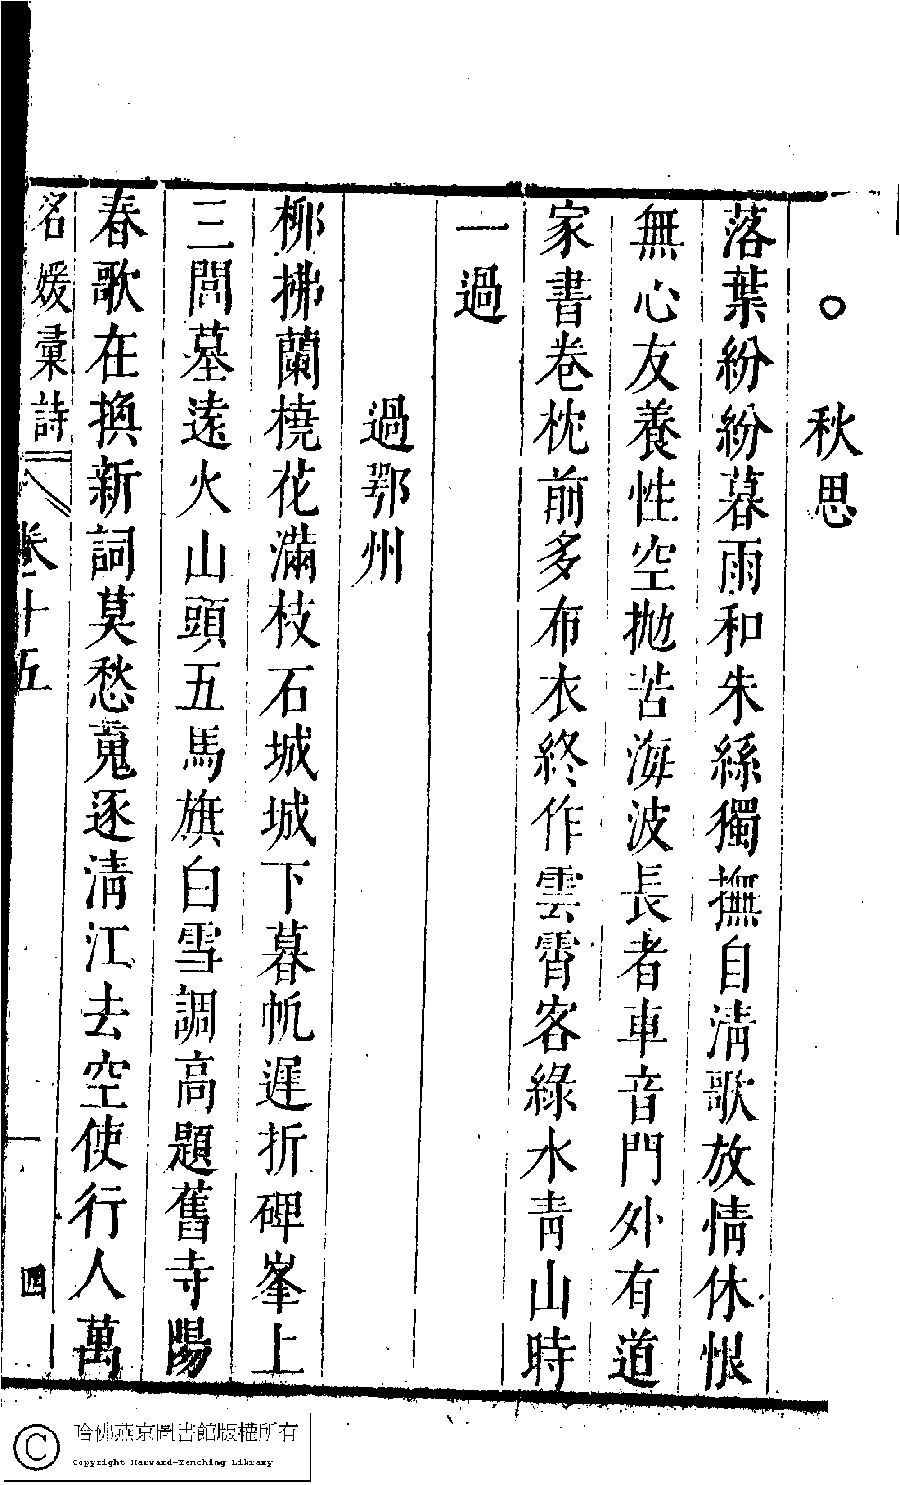 ○ 秋思
落葉紛紛暮雨和朱絲獨撫自淸歌放情休恨
無心友養性空拋苦海波長者車音門外有道
家書卷枕前多布衣終作雲霄客綠水靑山時
一過
過鄂州
柳拂蘭橈花滿枝石城城下暮帆遲折碑峯上
三閭墓遠火山頭五馬旗白雪調高題舊寺陽
春歌在換新詞莫愁䰟逐淸江去空使行人萬
名媛彙詩 卷十五 四
哈佛燕京圖書館版權所有
Copyright Harvard-Yenching Library